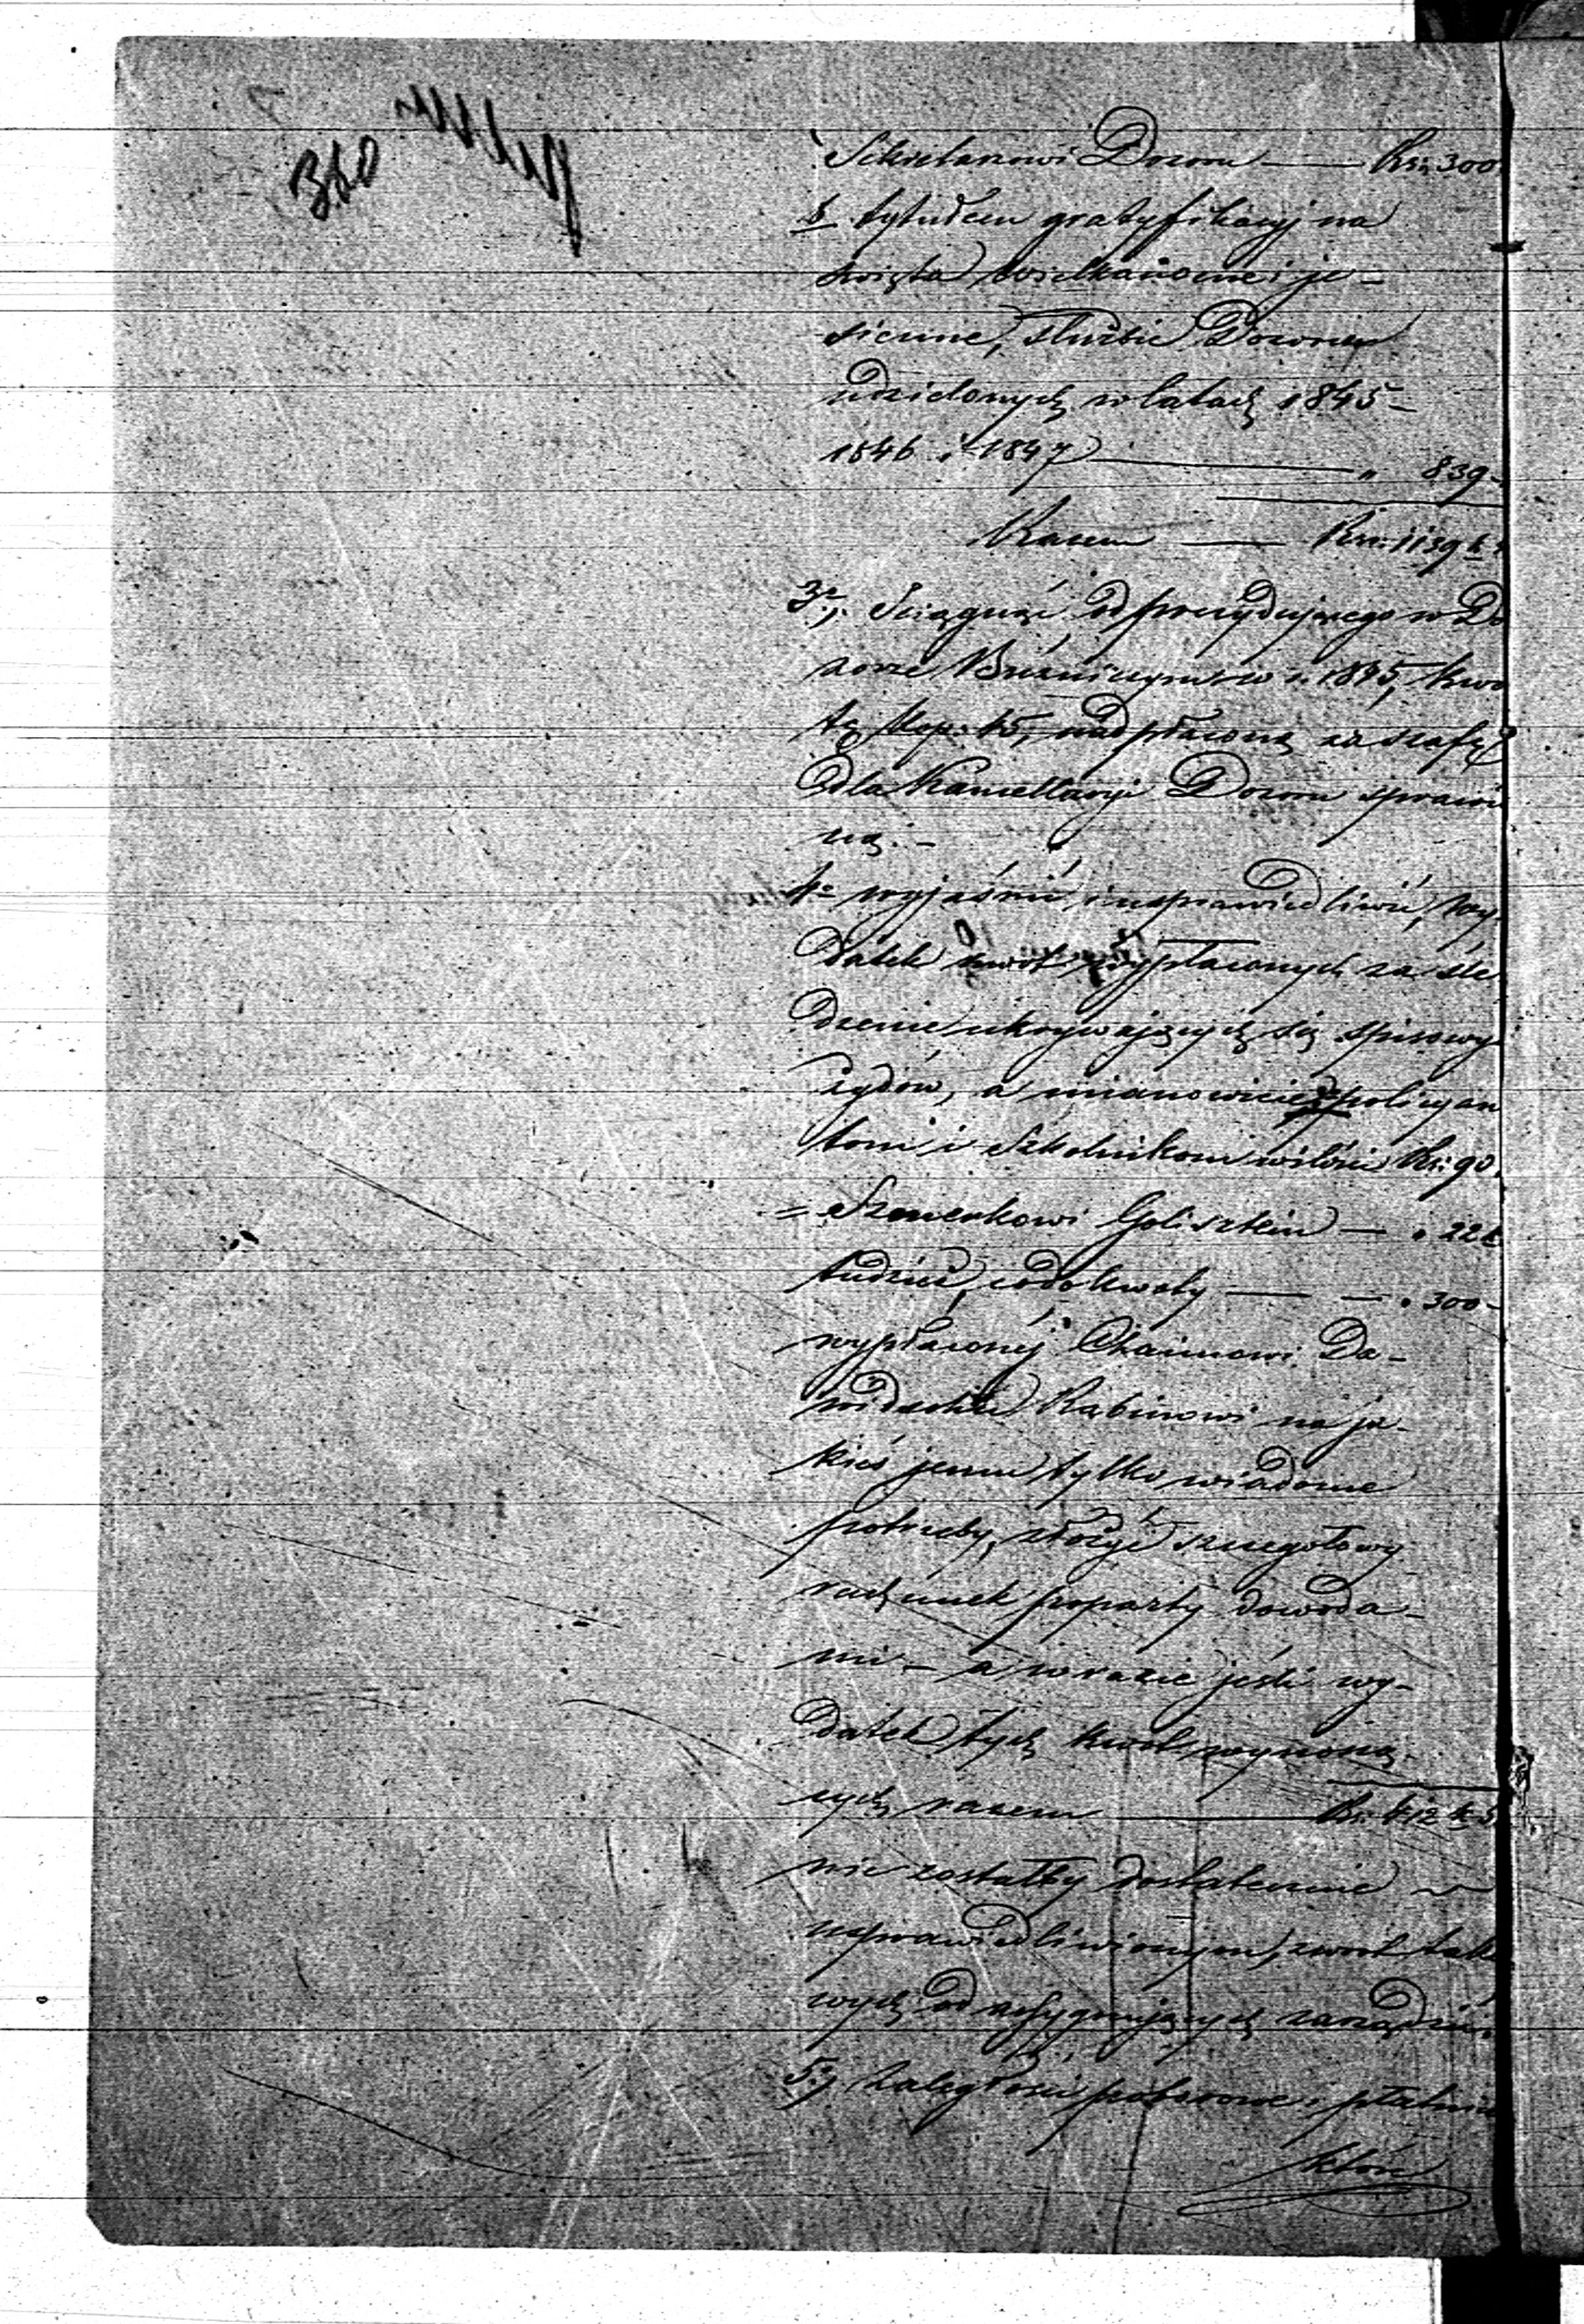 Sekretarzowi Dozoru — Rsr: 300
b tytułem gratyfikacyj na
święta wielkanocne i je-
sienne, służbie Dozoru
udzielonych w latach 1845-
1846 i 1847 — " 839-
Razem — Rsr: 1139 k
3º, Ściągnąć od prezydującego w Do
zorze Bóżniczym w r. 1845, kwo
tę kop: 45, nadpłaconą za szafę
dla Kancellaryi Dozoru sprawio
ną.-
4º wyjaśnić i usprawiedliwić, wy-
datek kwot wypłaconych za śle
dzenie ukrywających się spisowy
żydów, a mianowicie policyan
tom i Szkolnikom w ilości Rs: 90.
= Szmerkowi Golisztein — " 22 k
tudzież, co do kwoty — — " 300-
wypłaconéj Chaimowi Da-
widsohn Rabinowi na ja-
kieś jemu tylko wiadome
potrzeby, złożyć szczegółowy
rachunek poparty dowoda-
mi - a w razie jeśli wy-
datek tych kwot wynoszą-
cych razem — Rs: 412 k 5
nie zostałby dostatecznie
usprawiedliwionym, zwrot tako
wych od assygnujących zarządzić.
5º, Zaległości poborowe i płatnicze
które